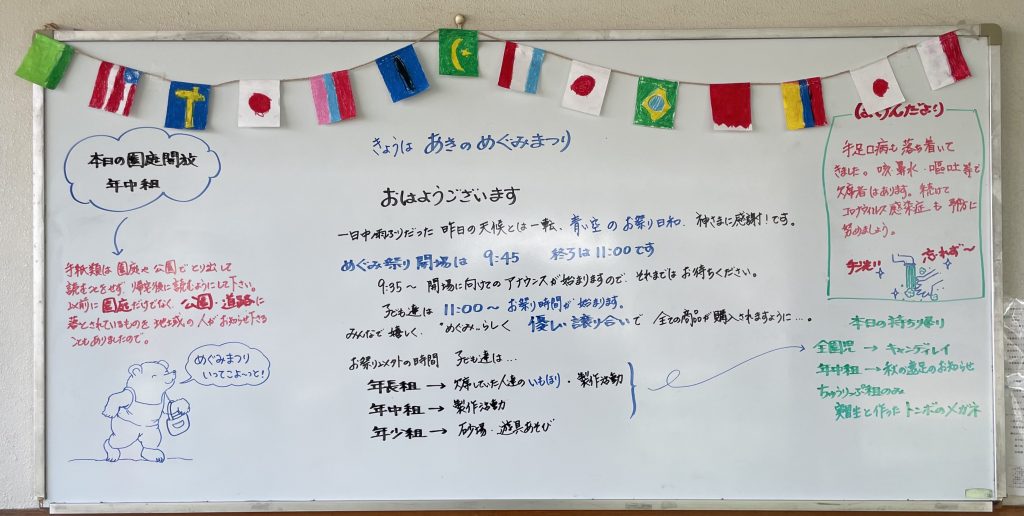 本日の園庭開放
年中組
手紙類は園庭や公園でとり出して
読むことをせず、帰宅後に読むようにして下さい。
以前に園庭だけでなく、公園・道路に
落とされているものを地域の人がお知らせ下さる
こともありましたので。
めぐみまつり
いってこよ〜っと!
きょうは あきのめぐみまつり
おはようございます
一日中雨ふりだった昨日の天候とは一転、青い空のお祭り日和、神さまに感謝!です。
めぐみ祭り開場は 9:45 終了は11:00です
9:35〜 開場に向けてのアナウンスが始まりますので、それまではお待ちください。
子ども達は 11:00〜お祭り時間が始まります。
みんなで嬉しく、"めぐみ"らしく 優しい譲り合いで 全ての商品が購入されますように…。
お祭り以外の時間 子ども達は…
年長組 → 欠席していた人達のいもほり・製作活動
年中組 → 製作活動
年少組 → 砂場・遊具あそび
ほけんだより
手足口病も落ち着いて
きました。咳・鼻水・嘔吐等で
欠席者はあります。続けて
コロナウイルス感染症も予防に
努めましょう。
手洗い
忘れず〜
本日の持ち帰り
全園児 → キャンディレイ
年中組 → 秋の遠足のお知らせ
ちゅうりっぷ組のみ
実習生と作ったトンボのメガネ